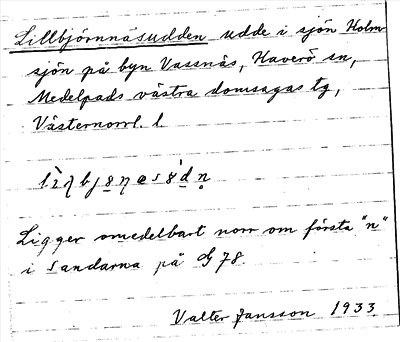 Lillbjörnnäsudden udde i sjön Holm
sjön på byn Vassnäs, Haverö sn,
Medelpads västra domsagas tg,
Västernorrl. l.
Ligger omedelbart norr om första "n"
i Sandarna på G 78.
Valter Jansson 1933